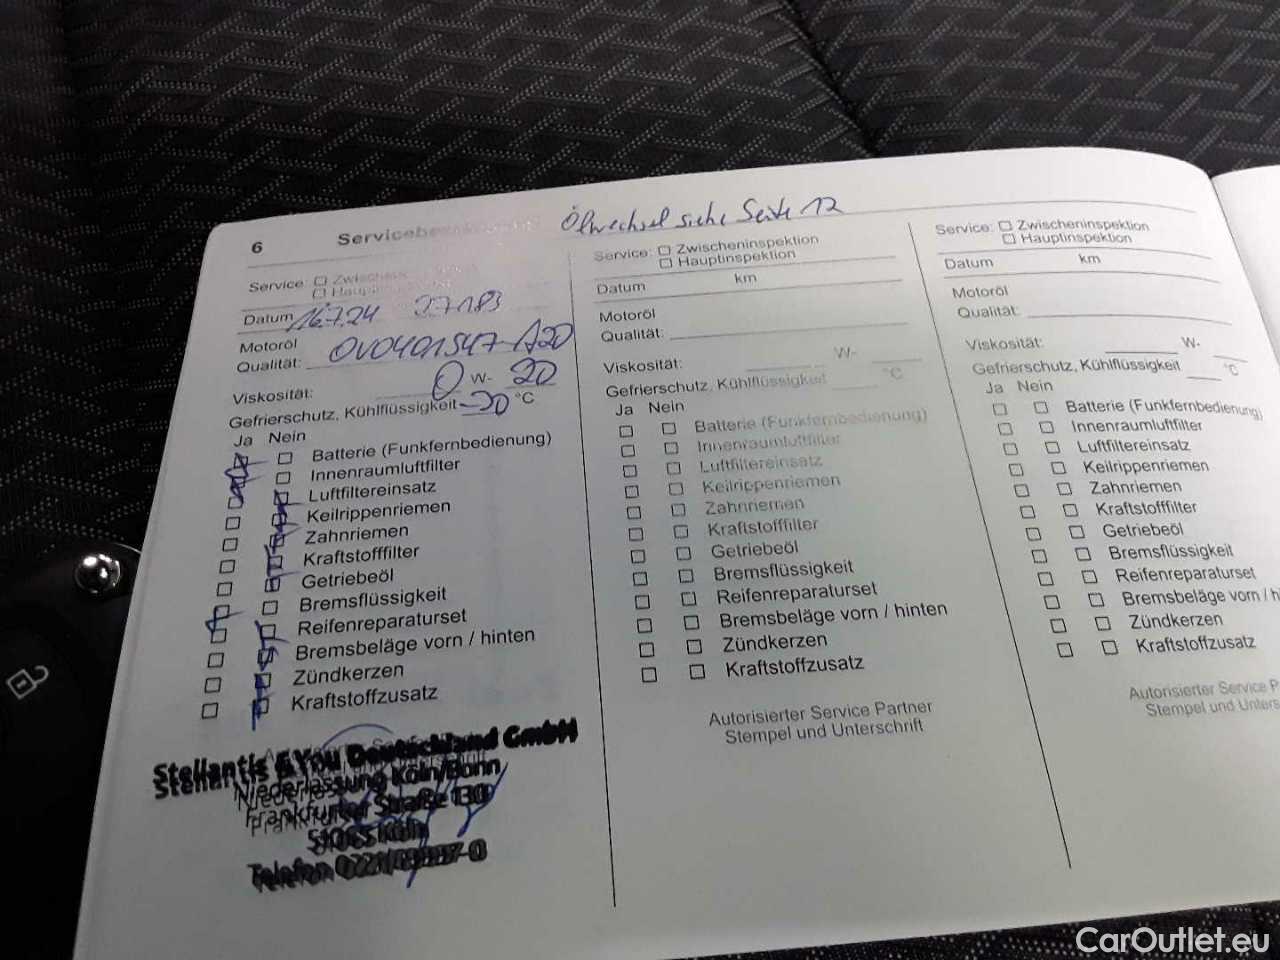 6 Servicebe
Ölwechsel siehe Seite 12
Service: Zwischeninspektion
Hauptinspektion
Datum 16.7.24 27183
Motoröl
Qualität: OV0401547-A20
Viskosität: 0 W- 20
Gefrierschutz, Kühlflüssigkeit -30 °C
Ja Nein
Batterie (Funkfernbedienung)
Innenraumluftfilter
Luftfiltereinsatz
Keilrippenriemen
Zahnriemen
Kraftstofffilter
Getriebeöl
Bremsflüssigkeit
Reifenreparaturset
Bremsbeläge vorn / hinten
Zündkerzen
Kraftstoffzusatz
Stellantis &You Deutschland GmbH
Niederlassung Köln/Bonn
Frankfurter Straße 130
Köln
Telefon
Service: Zwischeninspektion
Hauptinspektion
Datum km
Motoröl
Qualität:
Viskosität: W-
Gefrierschutz, Kühlflüssigkeit °C
Ja Nein
Batterie (Funkfernbedienung)
Innenraumluftfilter
Luftfiltereinsatz
Keilrippenriemen
Zahnriemen
Kraftstofffilter
Getriebeöl
Bremsflüssigkeit
Reifenreparaturset
Bremsbeläge vorn / hinten
Zündkerzen
Kraftstoffzusatz
Autorisierter Service Partner
Stempel und Unterschrift
Service: Zwischeninspektion
Hauptinspektion
Datum km
Motoröl
Qualität:
Viskosität: W-
Gefrierschutz, Kühlflüssigkeit °C
Ja Nein
Batterie (Funkfernbedienung)
Innenraumluftfilter
Luftfiltereinsatz
Keilrippenriemen
Zahnriemen
Kraftstofffilter
Getriebeöl
Bremsflüssigkeit
Reifenreparaturset
Bremsbeläge vorn / h
Zündkerzen
Kraftstoffzusatz
Autorisierter Service P
Stempel und Unters
CarOutlet.eu